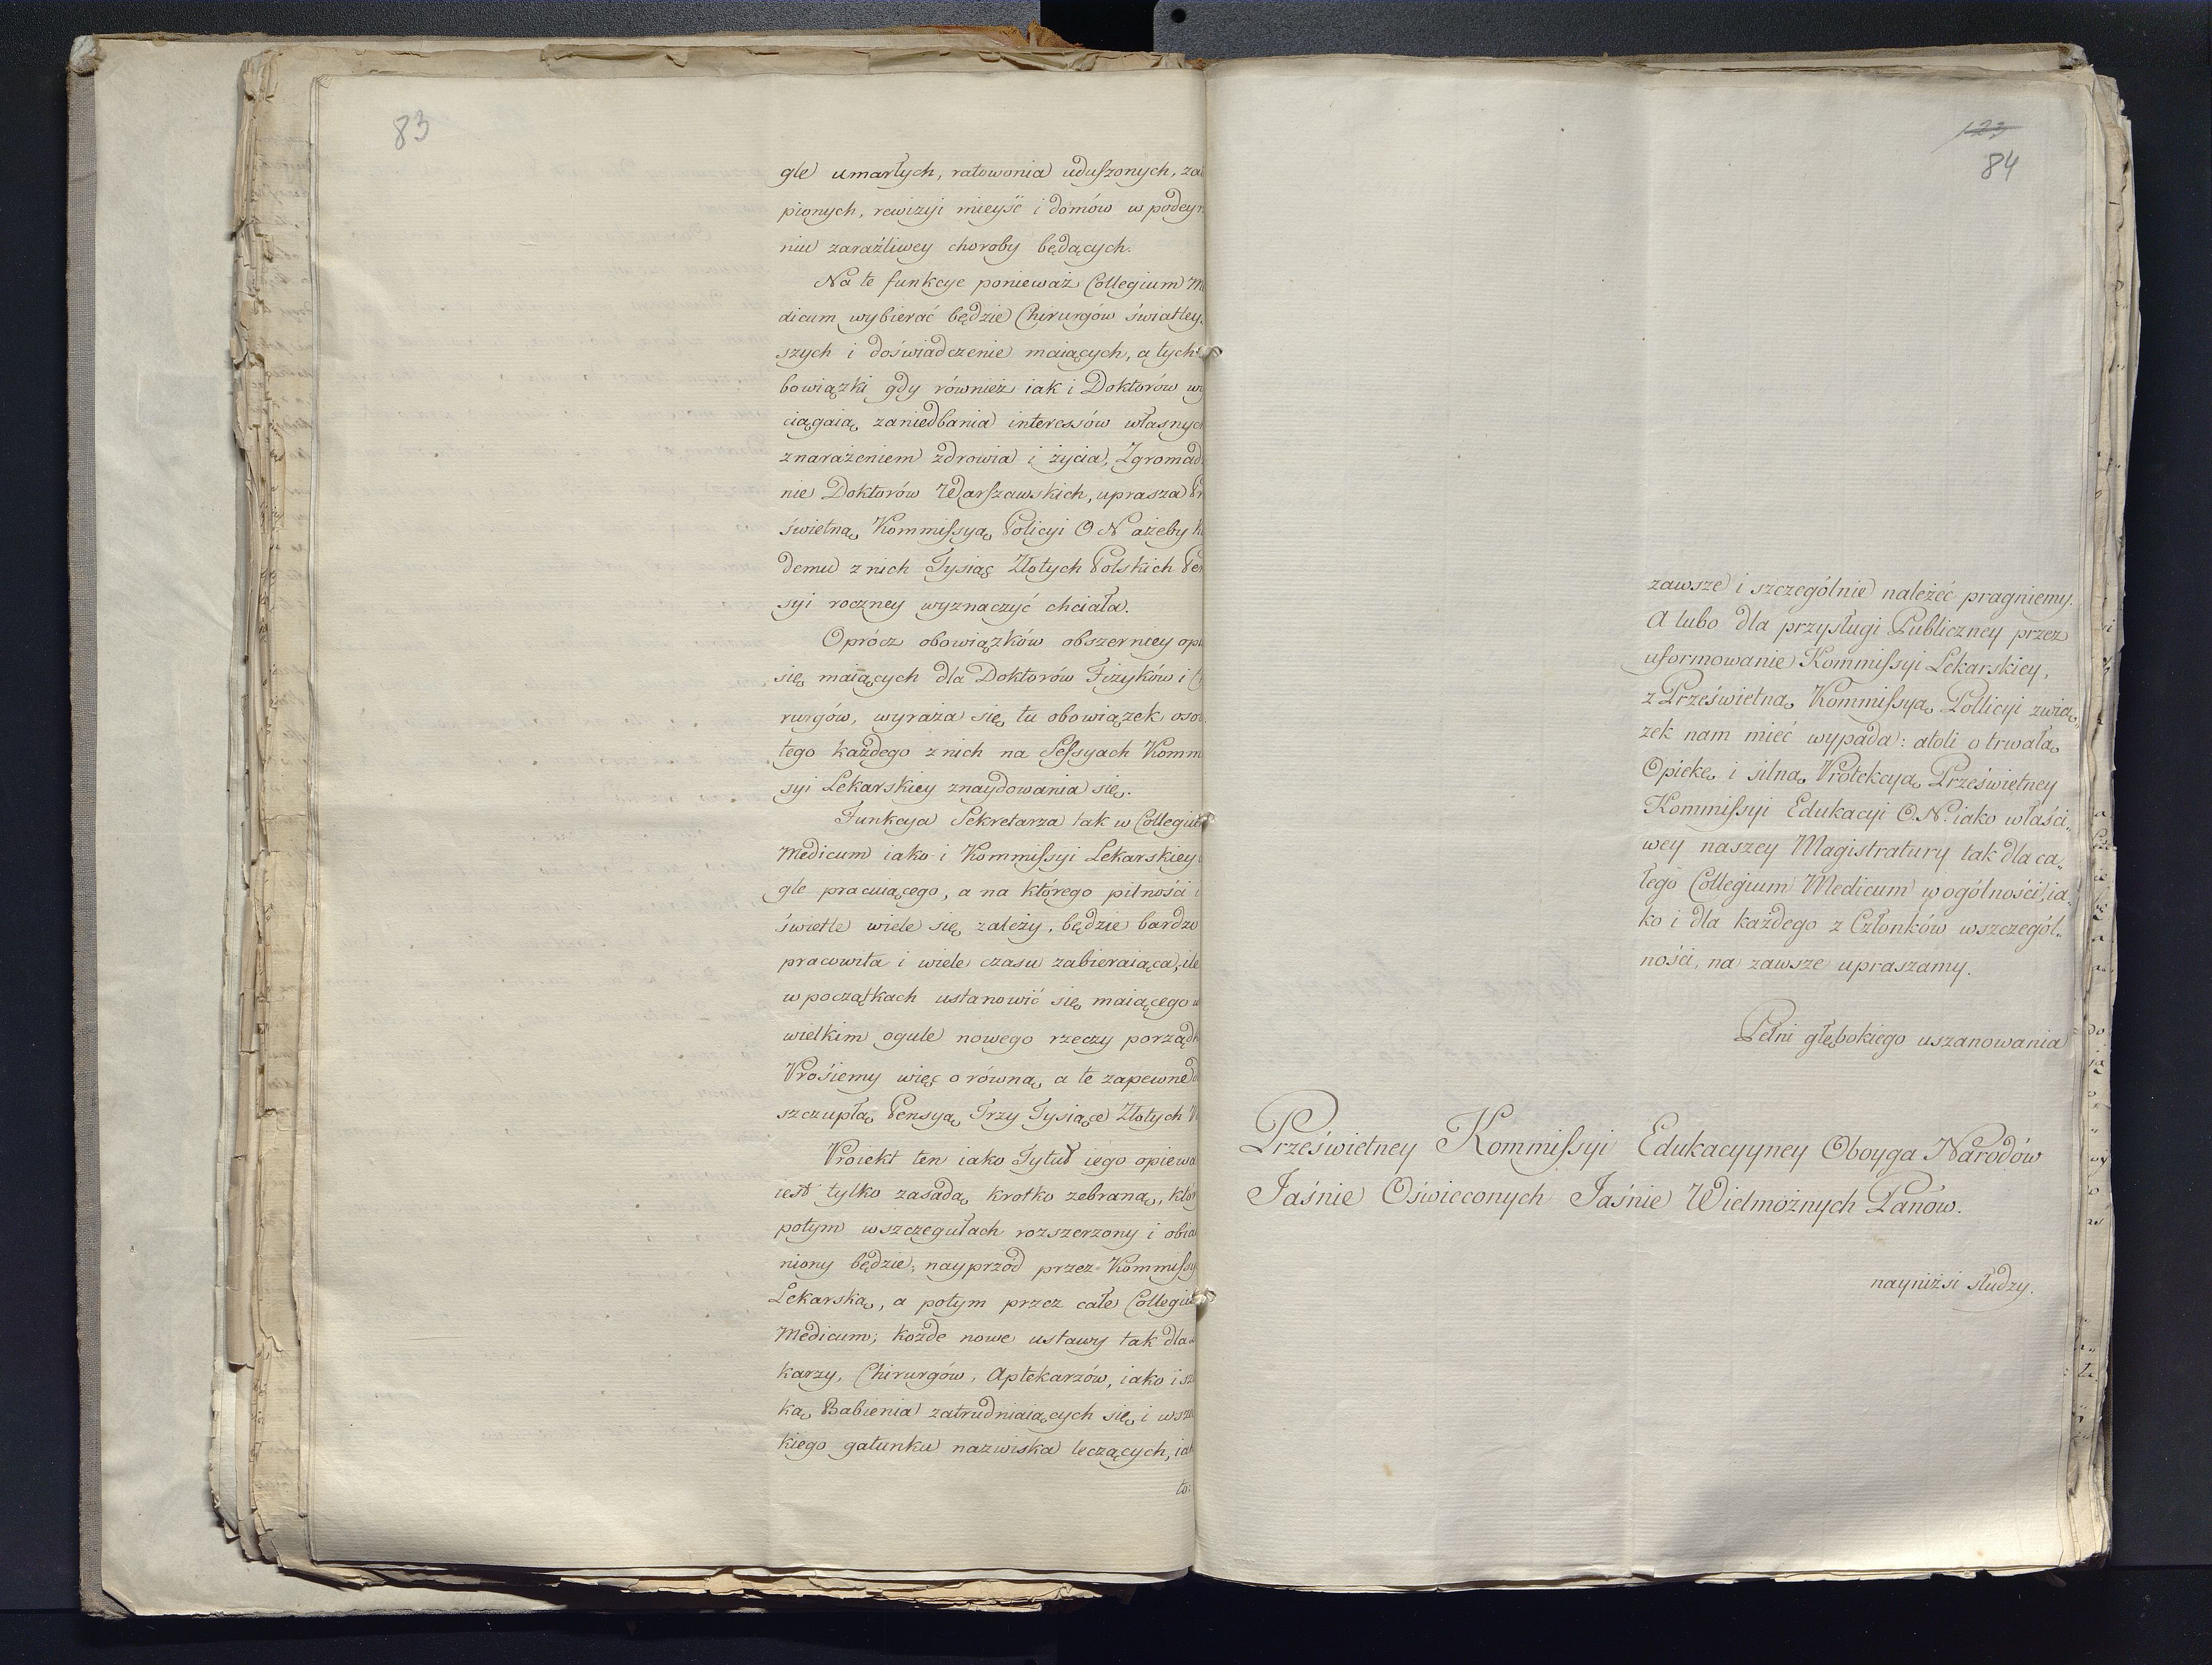 83
gle umarłych, ratowonia uduszonych, za
pionych, rewizyi mieysć i domów w podey
niu zaraźliwey choroby będących.
Na te funkcye ponieważ Collegium M
dicum wybierać będzie Chirurgów światley
szych i doświadczenie maiących, a tych
bowiązki gdy również iak i Doktorów wy
ciągaią zaniedbania interessów własnyc
znarażeniem zdrowia i życia, Zgromad
nie Doktorów Warszawskich, uprasza Pr
świetną Kommissyą Policyi O N ażeby k
demu z nich Tysiąc Złotych Polskich Pen
syi roczney wyznaczyć chciała.
Oprócz obowiązków obszerniey opi
się maiących dla Doktorów Fizyków i C
rurgów, wyraża się tu obowiązek oso
tego każdego z nich na Sessyach Komm
syi Lekarskiey znaydowania się.
Funkcya Sekretarza tak w Collegiu
Medicum iako i Kommissyi Lekarskiey
gle pracuiącego, a na którego pilności i
świetle wiele się zależy, będzie bardzo
pracowita i wiele czasu zabieraiąca, ile
w początkach ustanowić się maiącego w
wielkim ogule nowego rzeczy porządk
Prosiemy więc o równą, a te zapewne
szczupłą Pensyą Trzy Tysiące Złotych
Proiekt ten iako Tytuł iego opiewa
iest tylko zasadą krotko zebraną, któr
potym wszczegułach rozszerzony i obia
niony będzie, nayprzód przez Kommissy
Lekarską, a potym przez całe Collegiu
Medicum; kożde nowe ustawy tak dla
karzy, Chirurgów, Aptekarzów, iako i sz
ką Babienia zatrudniaiących się i wsze
kiego gatunku nazwiska leczących, iak
to:
123
84
zawsze i szczególnie należeć pragniemy.
A lubo dla przysługi Publiczney przez
uformowanie Kommissyi Lekarskiey,
z Prześwietną Kommissyą Pollicyi zwią„
zek nam mieć wypada: atoli o trwałą
Opiekę i silną Protekcyą Prześwietney
Kommissyi Edukacyi O. N. iako właści„
wey naszey Magistratury tak dla ca„
łego Collegium Medicum w ogólności, ia„
ko i dla każdego z Członków wszczegól„
ności, na zawsze upraszamy.
Pełni głębokiego uszanowania
Prześwietney Kommissyi Edukacyyney Oboyga Narodów
Jaśnie Oświeconych Jaśnie Wielmożnych Panów.
nayniżsi słudzy.